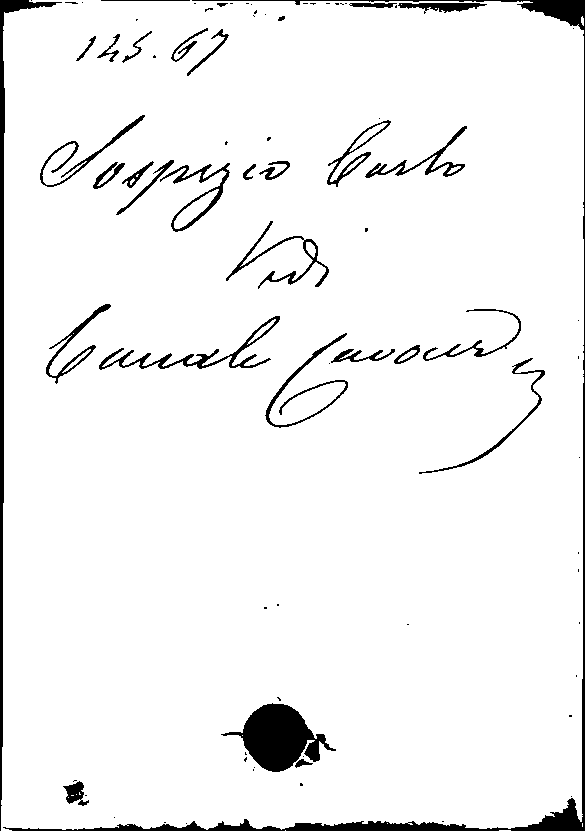 145.67
Sospizio Carlo
Vedi
Canale Cavour